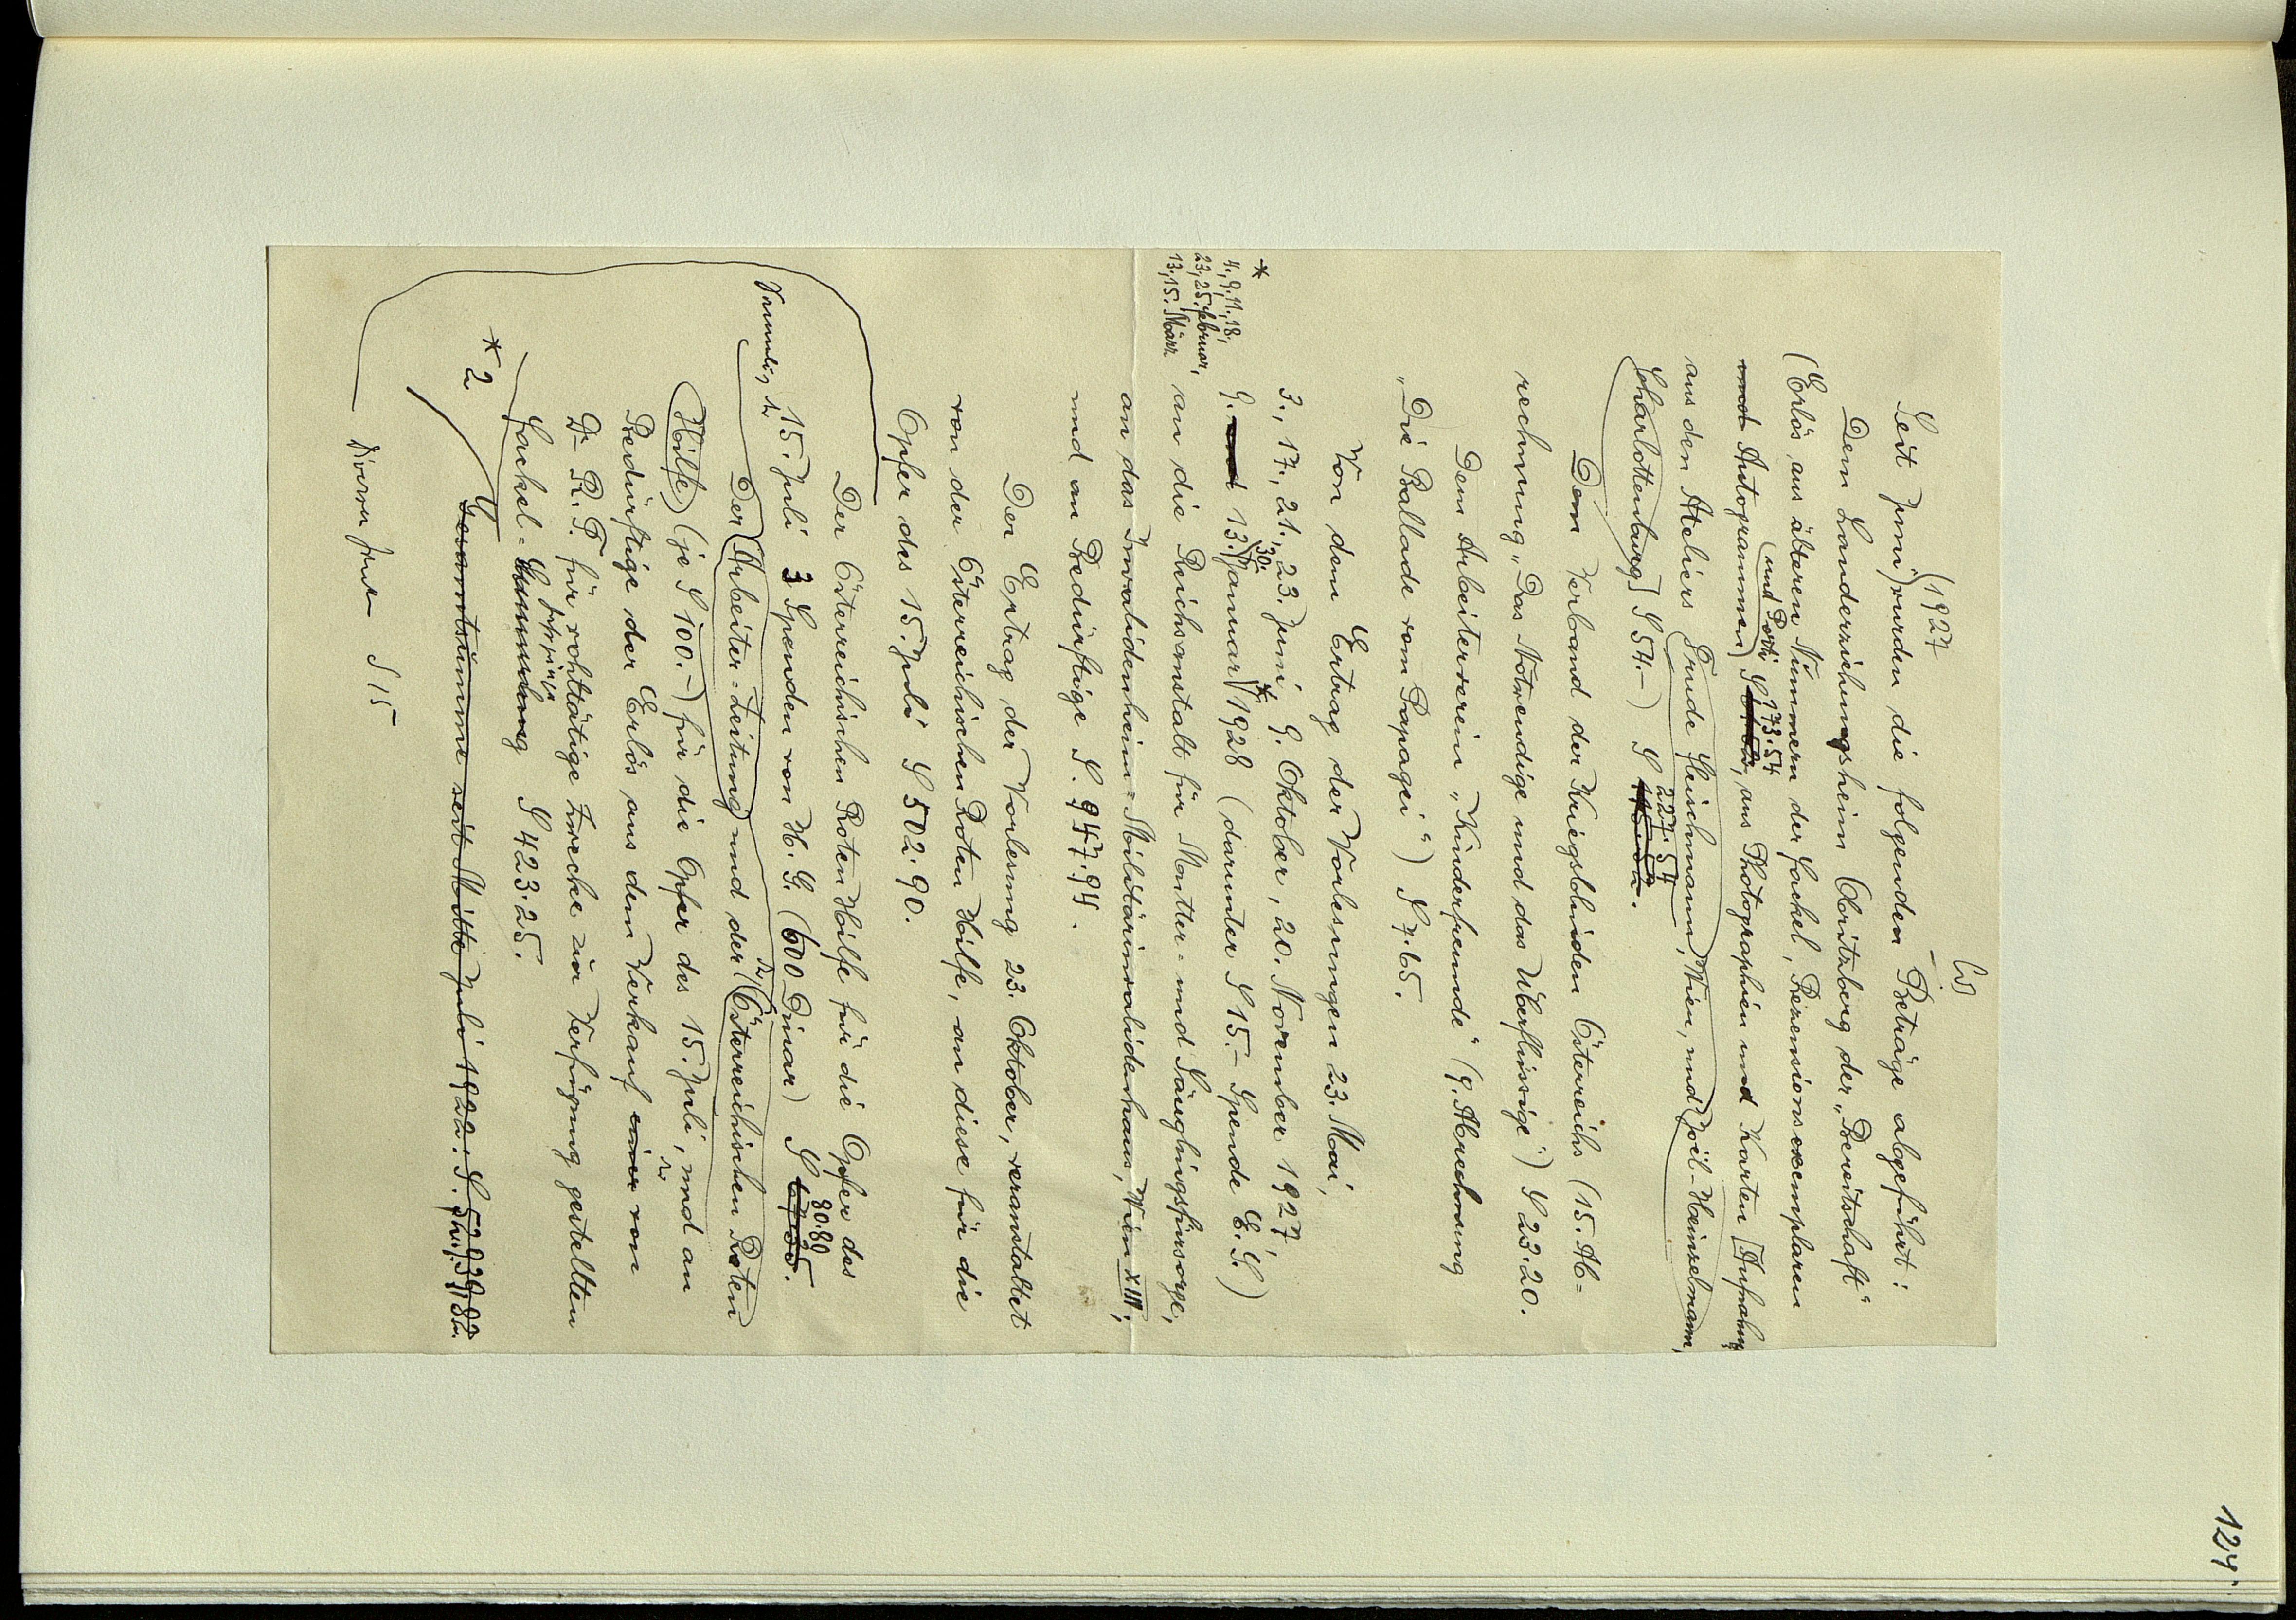 124.
1927
Seit Juni wurden die folgenden Beträge abgeführt:
Dem Landerziehungsheim Obritzberg der „Bereitschaft“
(Erlös aus älteren Nummern der Fackel, Rezensionsexemplaren
und Autogrammen (und Porti) S 173.54, aus Photographien und Karten [Aufnahmen
aus den Ateliers Trude Fleischmann, Wien, und Joël-Heinzelmann,
Charlottenburg] S 54.–) S 227.54.
Dem Verband der Kriegsblinden Österreichs (15. Ab-
rechnung „Das Notwendige und das Überflüssige“) S 23.20.
Dem Arbeiterverein „Kinderfreunde“ (9. Abrechnung
„Die Ballade vom Papagei“) S 7.65.
Von dem Ertrag der Vorlesungen 23. Mai,
3., 17., 21., 23. Juni, 9. Oktober, 20. November 1927,
9. und 13., 30. Januar * 1928 (darunter S 15.– Spende E. S.)
* 4., 9., 11., 18.,
23., 25. Februar,
13., 15. März
an die Reichsanstalt für Mutter- und Säuglingsfürsorge,
an das Invalidenheim-Militärinvalidenhaus, Wien XIII;
und an Bedürftige S. 947.94.
Der Ertrag der Vorlesung 23. Oktober, veranstaltet
von der Österreichischen Roten Hilfe, an diese für die
Opfer des 15. Juli S 502.90.
Der Österreichischen Roten Hilfe für die Opfer des
15. Juli 3 Spenden von H. G. (600 Dinar) S 80.80.
Der Arbeiter-Zeitung und der Österreichischen Roten
Hilfe (je S 100.–) für die Opfer des 15. Juli, und an
Bedürftige der Erlös aus dem Verkauf einer von
Dr. R. T. für wohltätige Zwecke zur Verfügung gestellten
Fackel-Sammlung S 423.25.
* 2
Gesamtsumme seit Mitte Juli 1922: S.
S 15